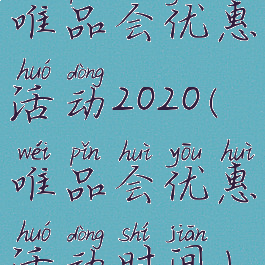 唯品会优惠
huó dòng
活动2020(
wéi pǐn huì yōu huì
唯品会优惠
huó dòng shí jiān
活动时间)